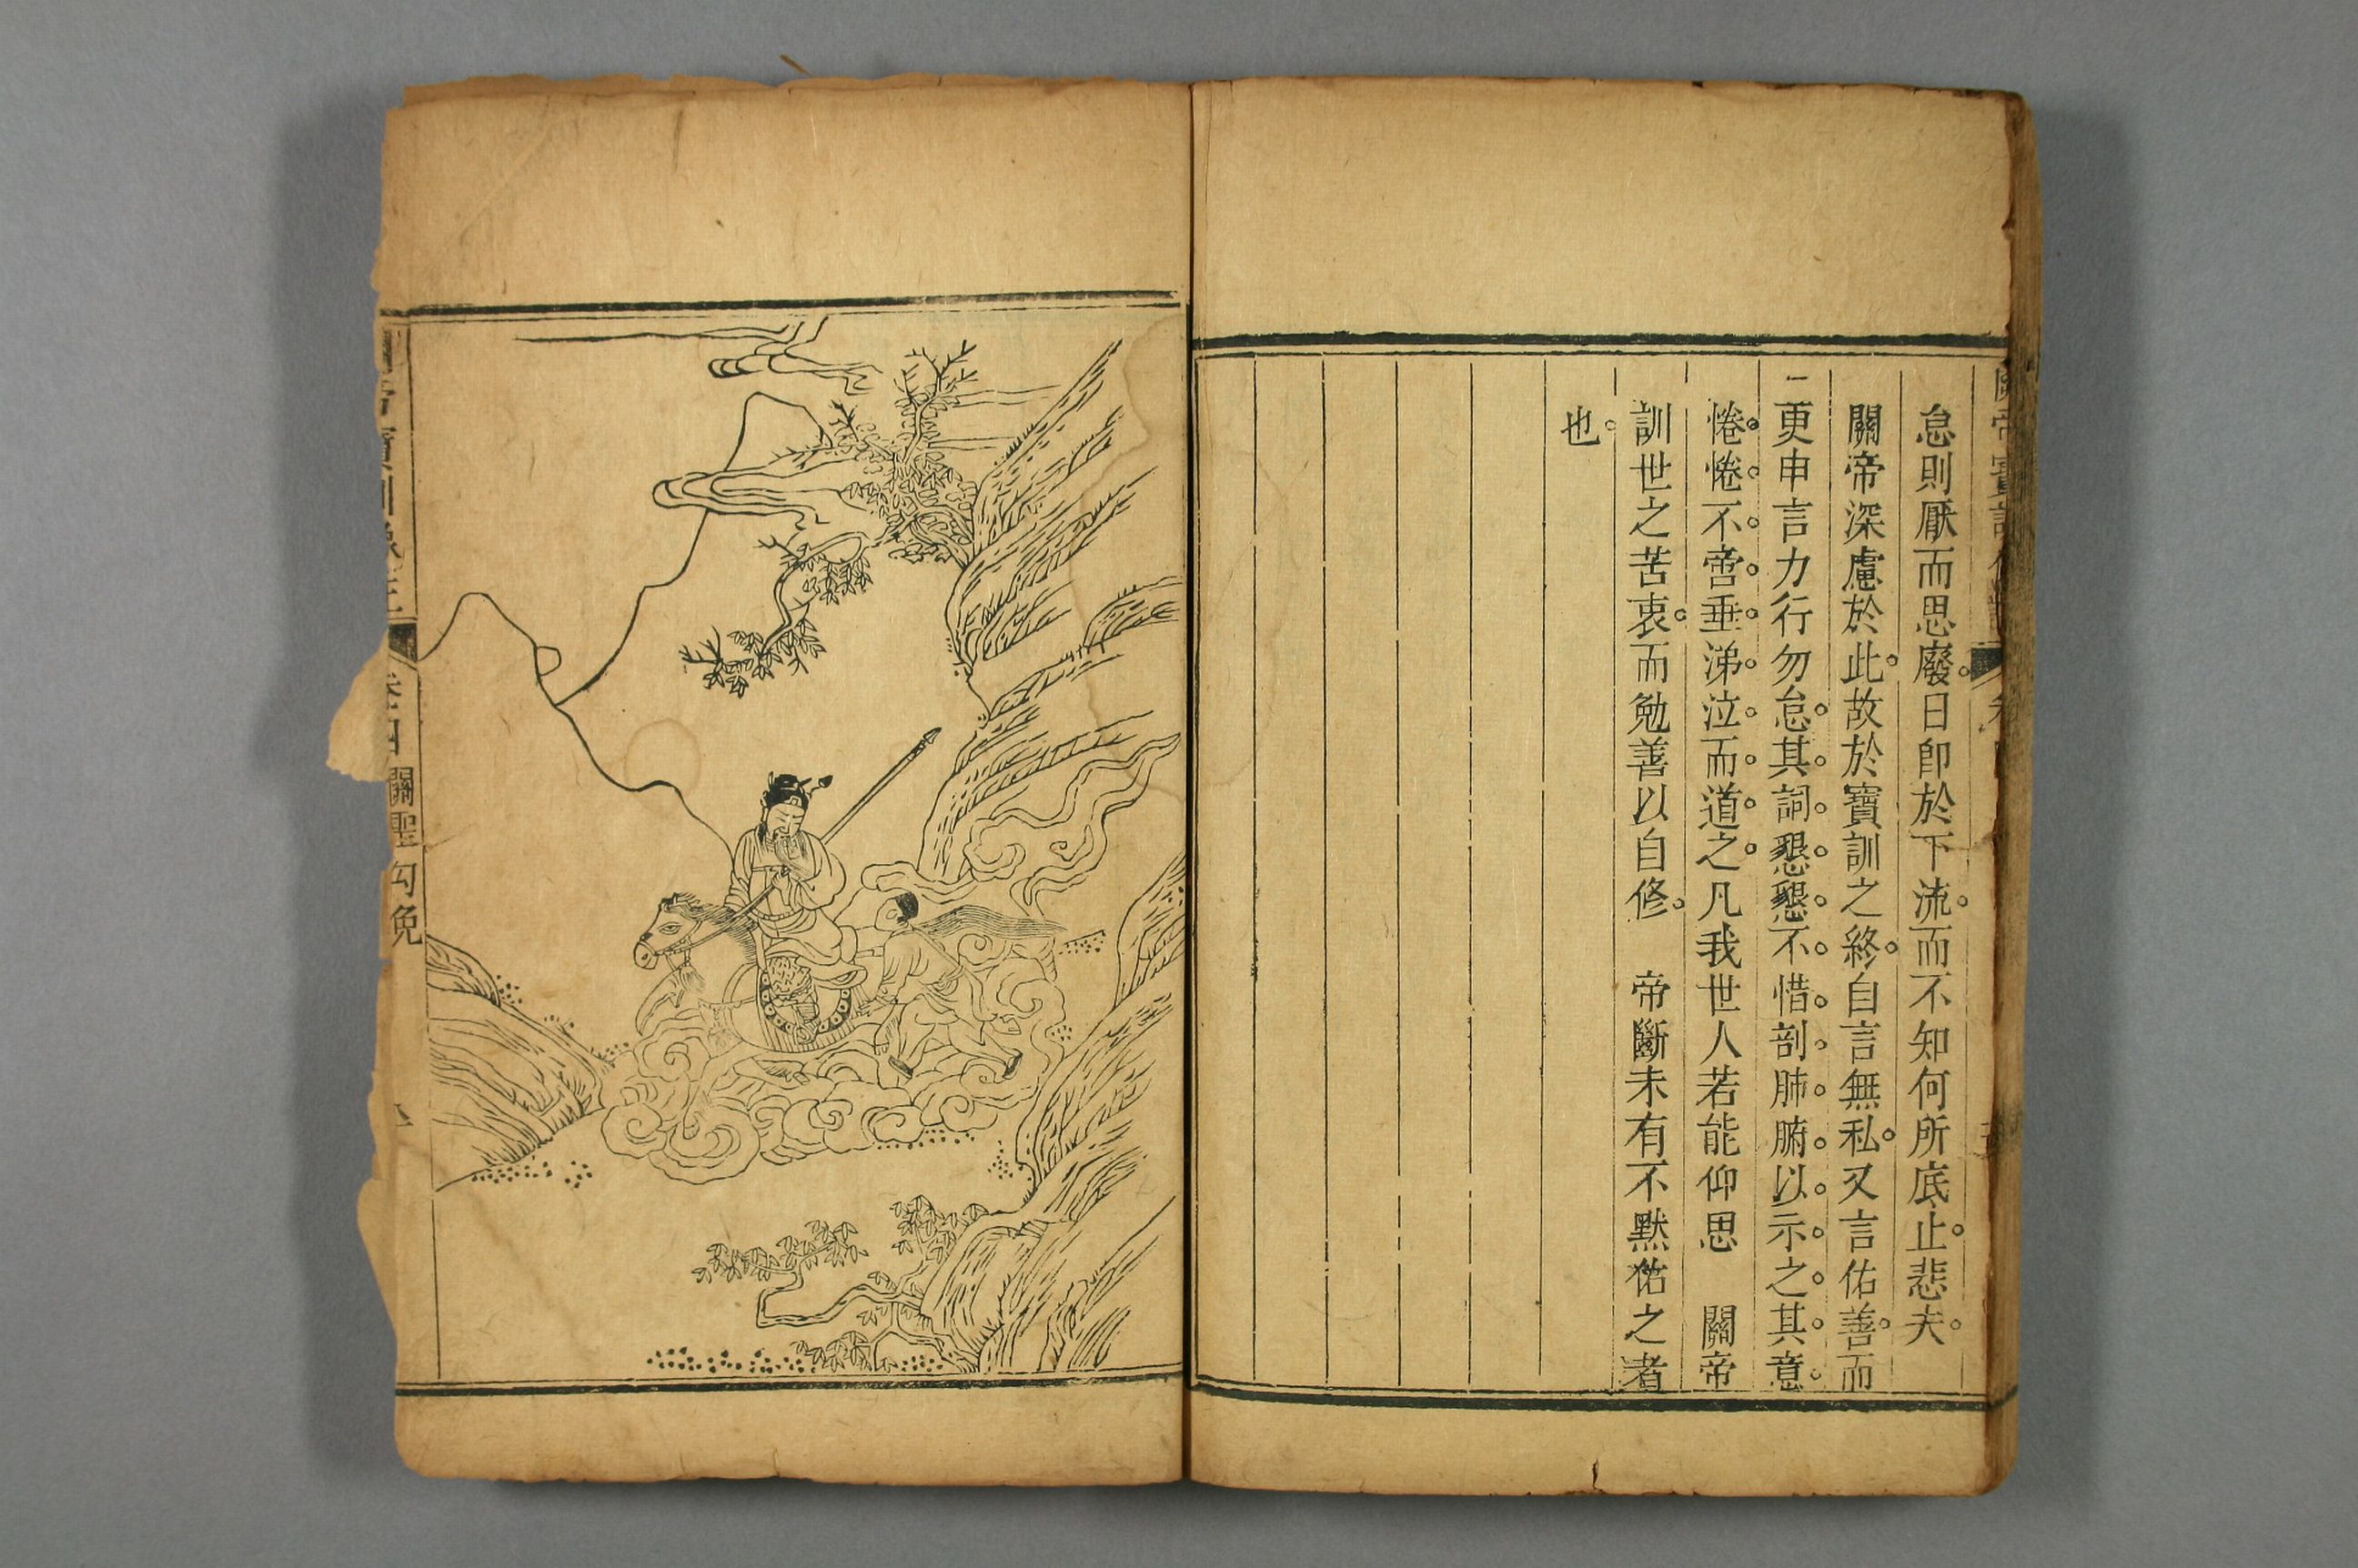 關帝寶訓
怠則厭而思廢。日卽於下流。而不知何所底止。悲夫。
關帝深慮於此。故於寶訓之終。自言無私。又言佑善。而
一更申言力行勿怠。其詞懇懇。不惜剖肺腑以示之。其意
惓惓。不啻垂涕泣而道之。凡我世人若能仰思 關帝
訓世之苦衷。而勉善以自修。 帝斷未有不默佑之者
也。
寶訓像
卷四 關聖勾免